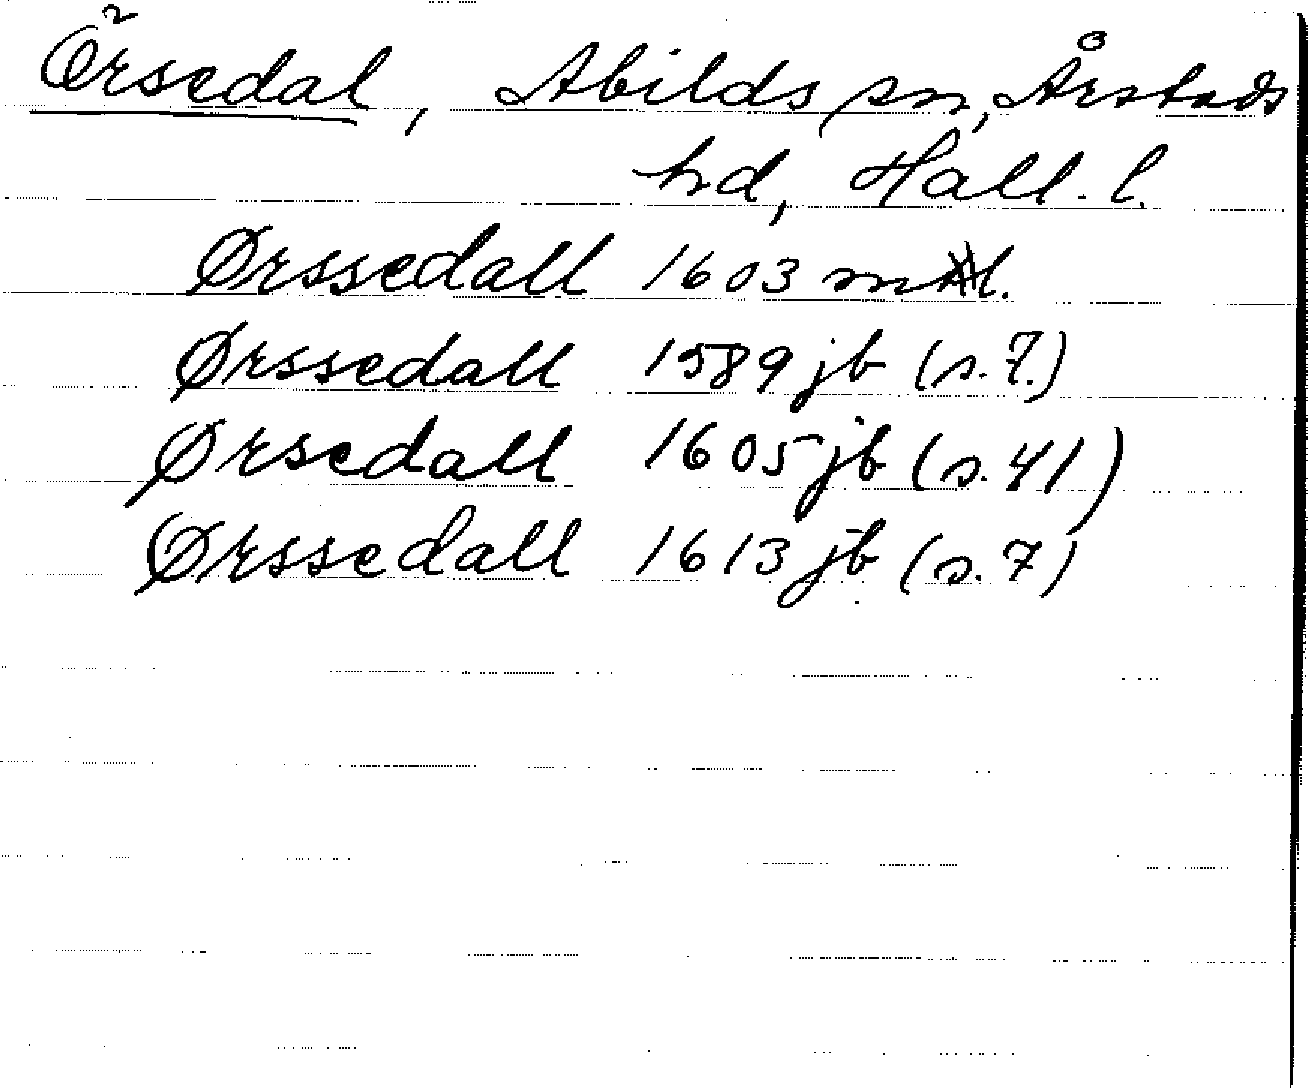 Örsedal, Abilds sn, Årstads
hd, Hall. l.
Ørssedall 1603 ml.
Ørssedall 1589 jb (s. 7.)
Ørsedall 1605 jb (s. 41)
Ørssedall 1613 jb (s. 7)